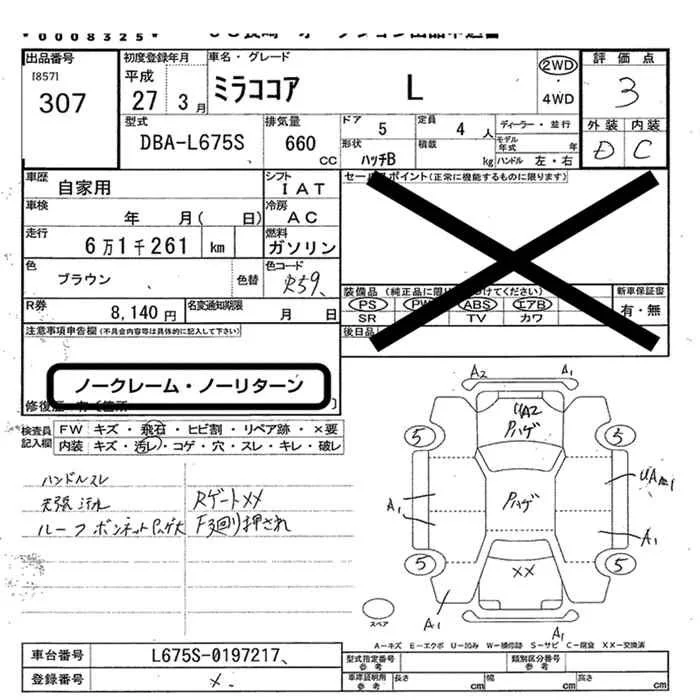 *0008325*
出品番号 初度登録年月 車名・グレード 2WD 評価点
[857] 平成 ミラココア L ・ 3
307 27 3月 4WD
外装 内装
型式 排気量 ドア 5 定員 4人 ディーラー・並行 D C
DBA-L675S 660 CC 形状 ハッチB 積載 kg モデル年式 年 ハンドル 左・右
車歴 自家用 シフト IAT セールスポイント(正常に機能するものに限ります)
車検 年 月( 日) 冷房 AC
走行 6万1千261 km 燃料 ガソリン
色 ブラウン 色替 色コード R59
装備品 (純正品に限り 付けてください) 新車保証書
PS PW ABS エアB 有・無
R券 8,140円 名変通知期限 月 日 SR TV カワ
注意事項申告欄(不具合内容等は具体的に記入して下さい) 後日品
ノークレーム・ノーリターン
修復歴
検査員記入欄 FW キズ・飛石・ヒビ割・リペア跡・×要
内装 キズ・汚レ・コゲ・穴・スレ・キレ・破レ
ハンドルスレ
天張汚れ Rゲートxx
ルーフ ボンネットPハゲ大 F廻り押され
A2 A1
UA2
Pハゲ
5 5
Pハゲ
A1
A1
5 5
XX
A1 A1
スペア
A-キズ E-エクボ U-凹み W-補修跡 S-サビ C-腐食 XX-交換済
車台番号 L675S-0197217
型式指定番号 参考 類別区分番号 参考
登録番号 ×
車庫証明用 参考 長さ cm 幅 cm 高さ cm